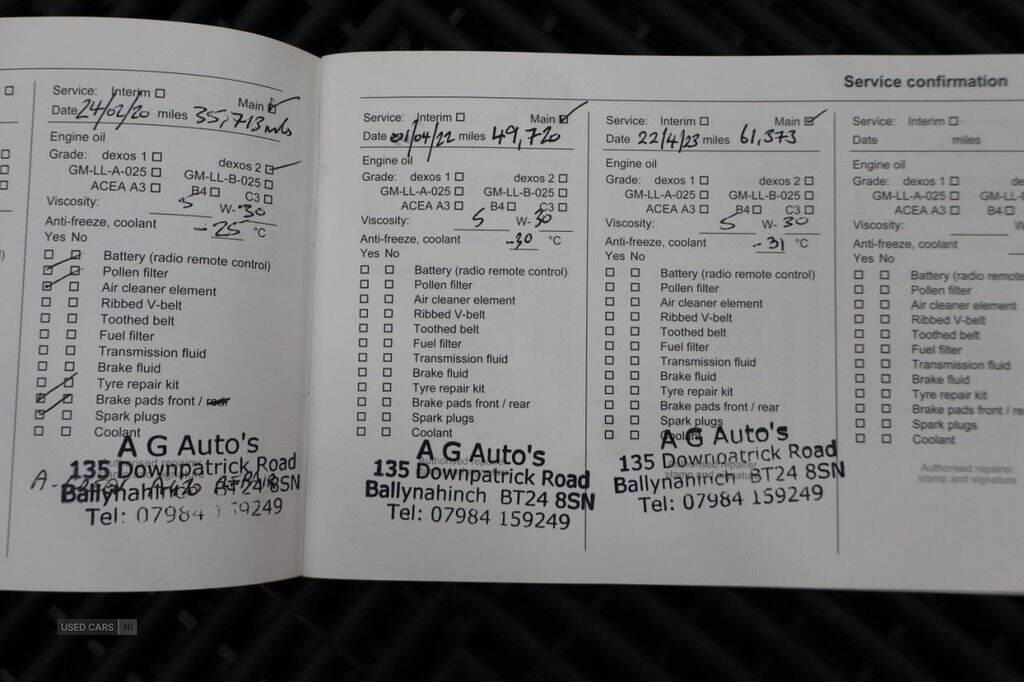 Service confirmation
Service: Interim Main
Date 24/02/20 miles 35,713 mls
Engine oil
Grade: dexos 1 dexos 2
GM-LL-A-025 GM-LL-B-025
ACEA A3 B4 C3
Viscosity: 5 W- 30
Anti-freeze, coolant -25 °C
Yes No
Battery (radio remote control)
Pollen filter
Air cleaner element
Ribbed V-belt
Toothed belt
Fuel filter
Transmission fluid
Brake fluid
Tyre repair kit
Brake pads front / rear
Spark plugs
Coolant
A G Auto's
135 Downpatrick Road
Ballynahinch BT24 8SN
Tel: 07984 159249
Service: Interim Main
Date 01/04/22 miles 49,720
Engine oil
Grade: dexos 1 dexos 2
GM-LL-A-025 GM-LL-B-025
ACEA A3 B4 C3
Viscosity: 5 W- 30
Anti-freeze, coolant -30 °C
Yes No
Battery (radio remote control)
Pollen filter
Air cleaner element
Ribbed V-belt
Toothed belt
Fuel filter
Transmission fluid
Brake fluid
Tyre repair kit
Brake pads front / rear
Spark plugs
Coolant
A G Auto's
135 Downpatrick Road
Ballynahinch BT24 8SN
Tel: 07984 159249
Service: Interim Main
Date 22/4/23 miles 61,373
Engine oil
Grade: dexos 1 dexos 2
GM-LL-A-025 GM-LL-B-025
ACEA A3 B4 C3
Viscosity: 5 W- 30
Anti-freeze, coolant -31 °C
Yes No
Battery (radio remote control)
Pollen filter
Air cleaner element
Ribbed V-belt
Toothed belt
Fuel filter
Transmission fluid
Brake fluid
Tyre repair kit
Brake pads front / rear
Spark plugs
Coolant
A G Auto's
135 Downpatrick Road
stamp and signature
Ballynahinch BT24 8SN
Tel: 07984 159249
Service: Interim
Date miles
Engine oil
Grade: dexos 1 de
GM-LL-A-025 GM-L
ACEA A3 B4
Viscosity: W-
Anti-freeze, coolant
Yes No
Battery (radio remote
Pollen filter
Air cleaner element
Ribbed V-belt
Toothed belt
Fuel filter
Transmission fluid
Brake fluid
Tyre repair kit
Brake pads front / re
Spark plugs
Coolant
Authorised repairer
stamp and signature
USED CARS NI